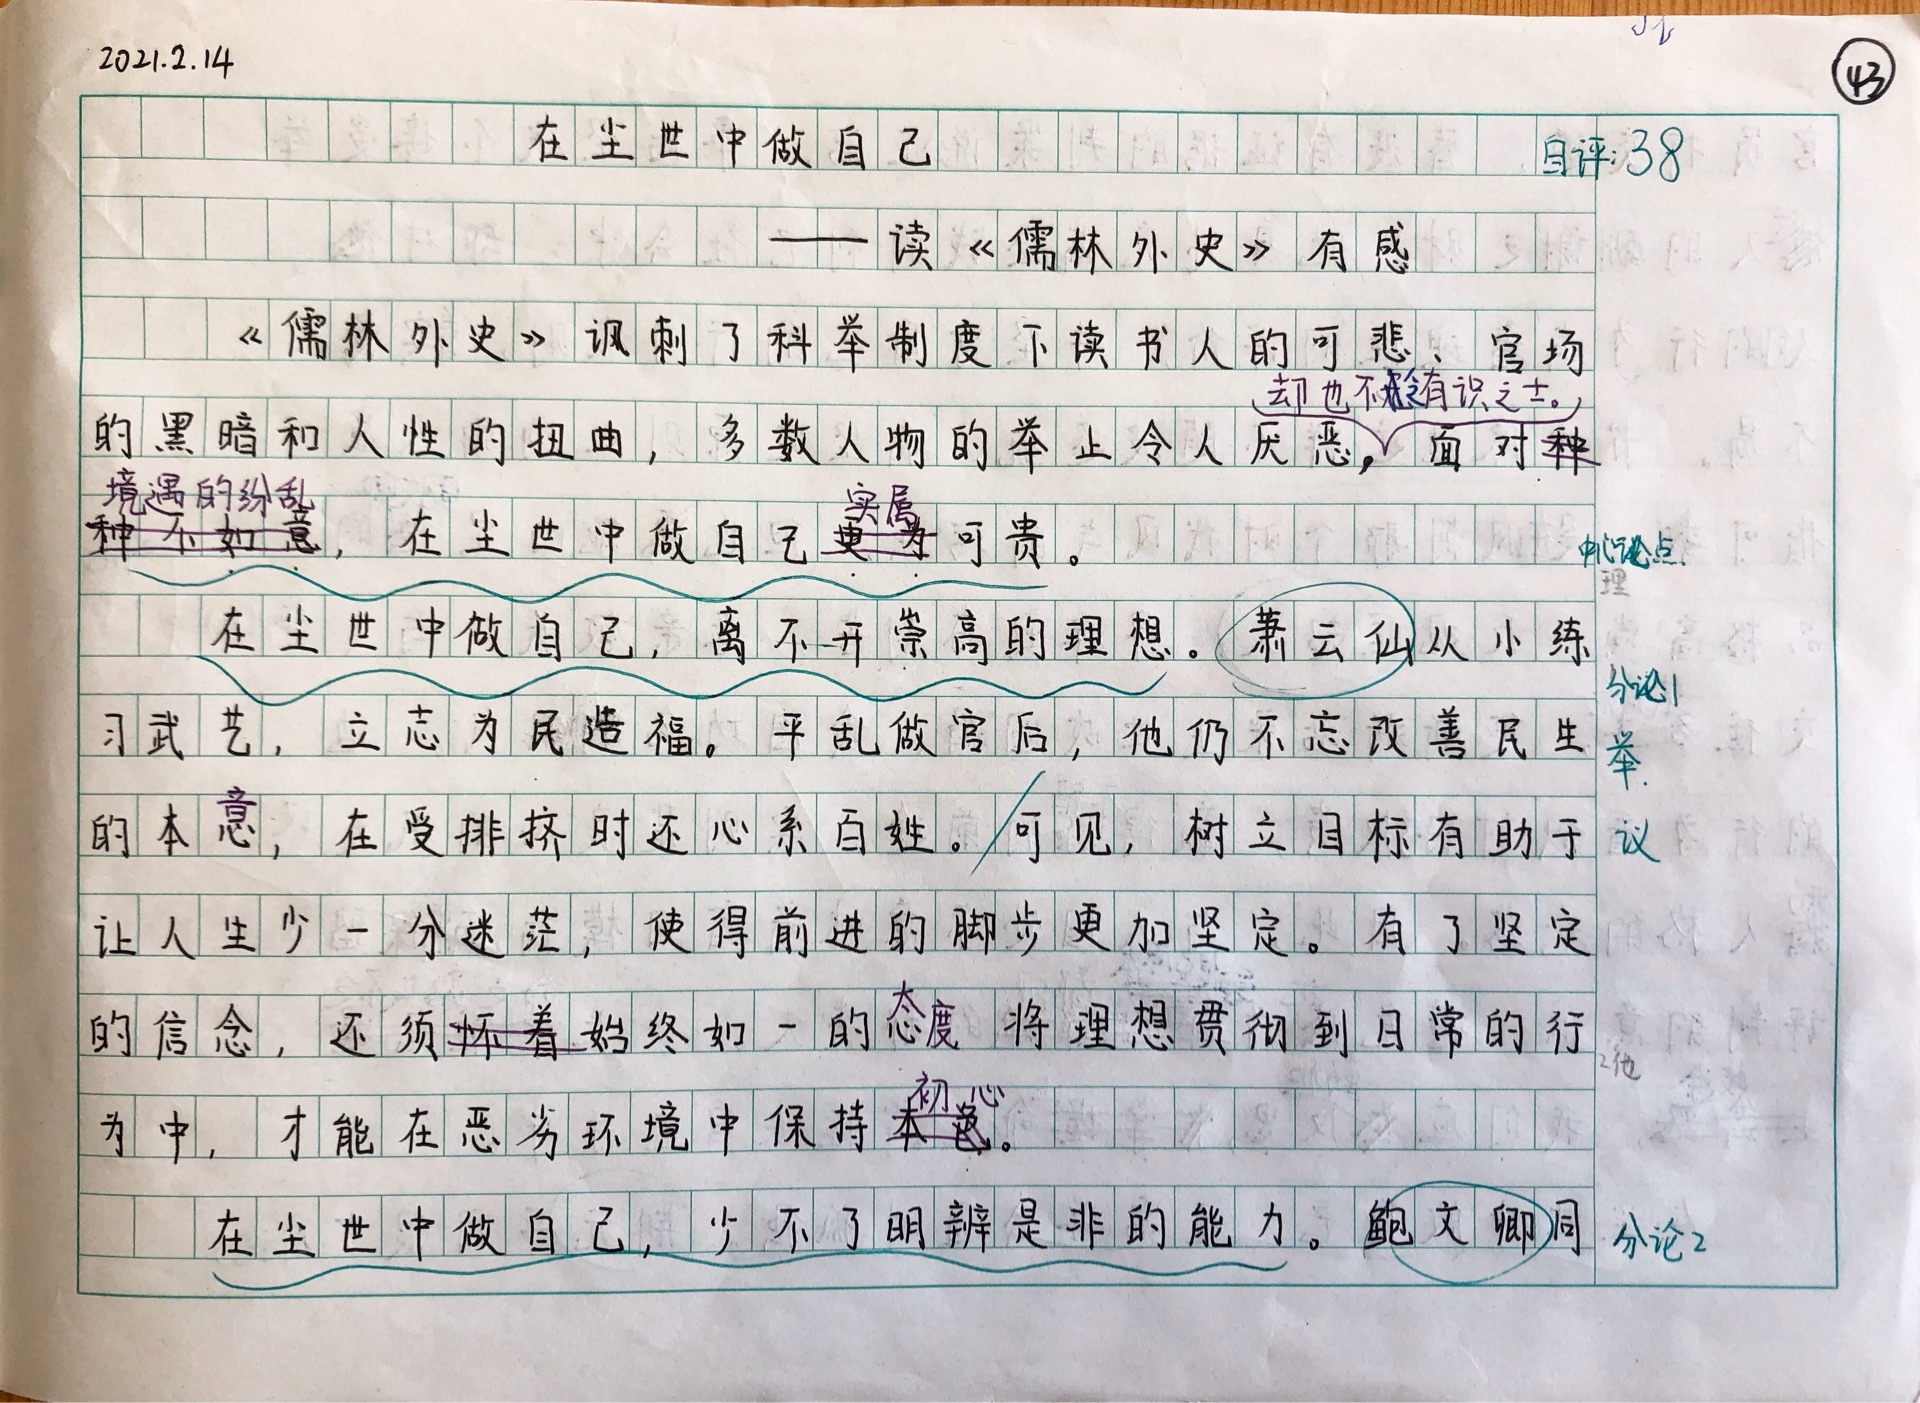 2021.2.14
43
在尘世中做自己
自评:38
——读《儒林外史》有感
《儒林外史》讽刺了科举制度下读书人的可悲、官场
却也不乏有识之士。
的黑暗和人性的扭曲，多数人物的举止令人厌恶，面对种
境遇的纷乱 实属
种不如意，在尘世中做自己更为可贵。
中心论点
理
在尘世中做自己，离不开崇高的理想。萧云仙从小练
分论1
习武艺，立志为民造福。平乱做官后，他仍不忘改善民生
举
的本意，在受排挤时还心系百姓。/可见，树立目标有助于
议
让人生少一分迷茫，使得前进的脚步更加坚定。有了坚定
的信念，还须怀着始终如一的态度将理想贯彻到日常的行
初心
为中，才能在恶劣环境中保持本色。
在尘世中做自己，少不了明辨是非的能力。鲍文卿同
分论2